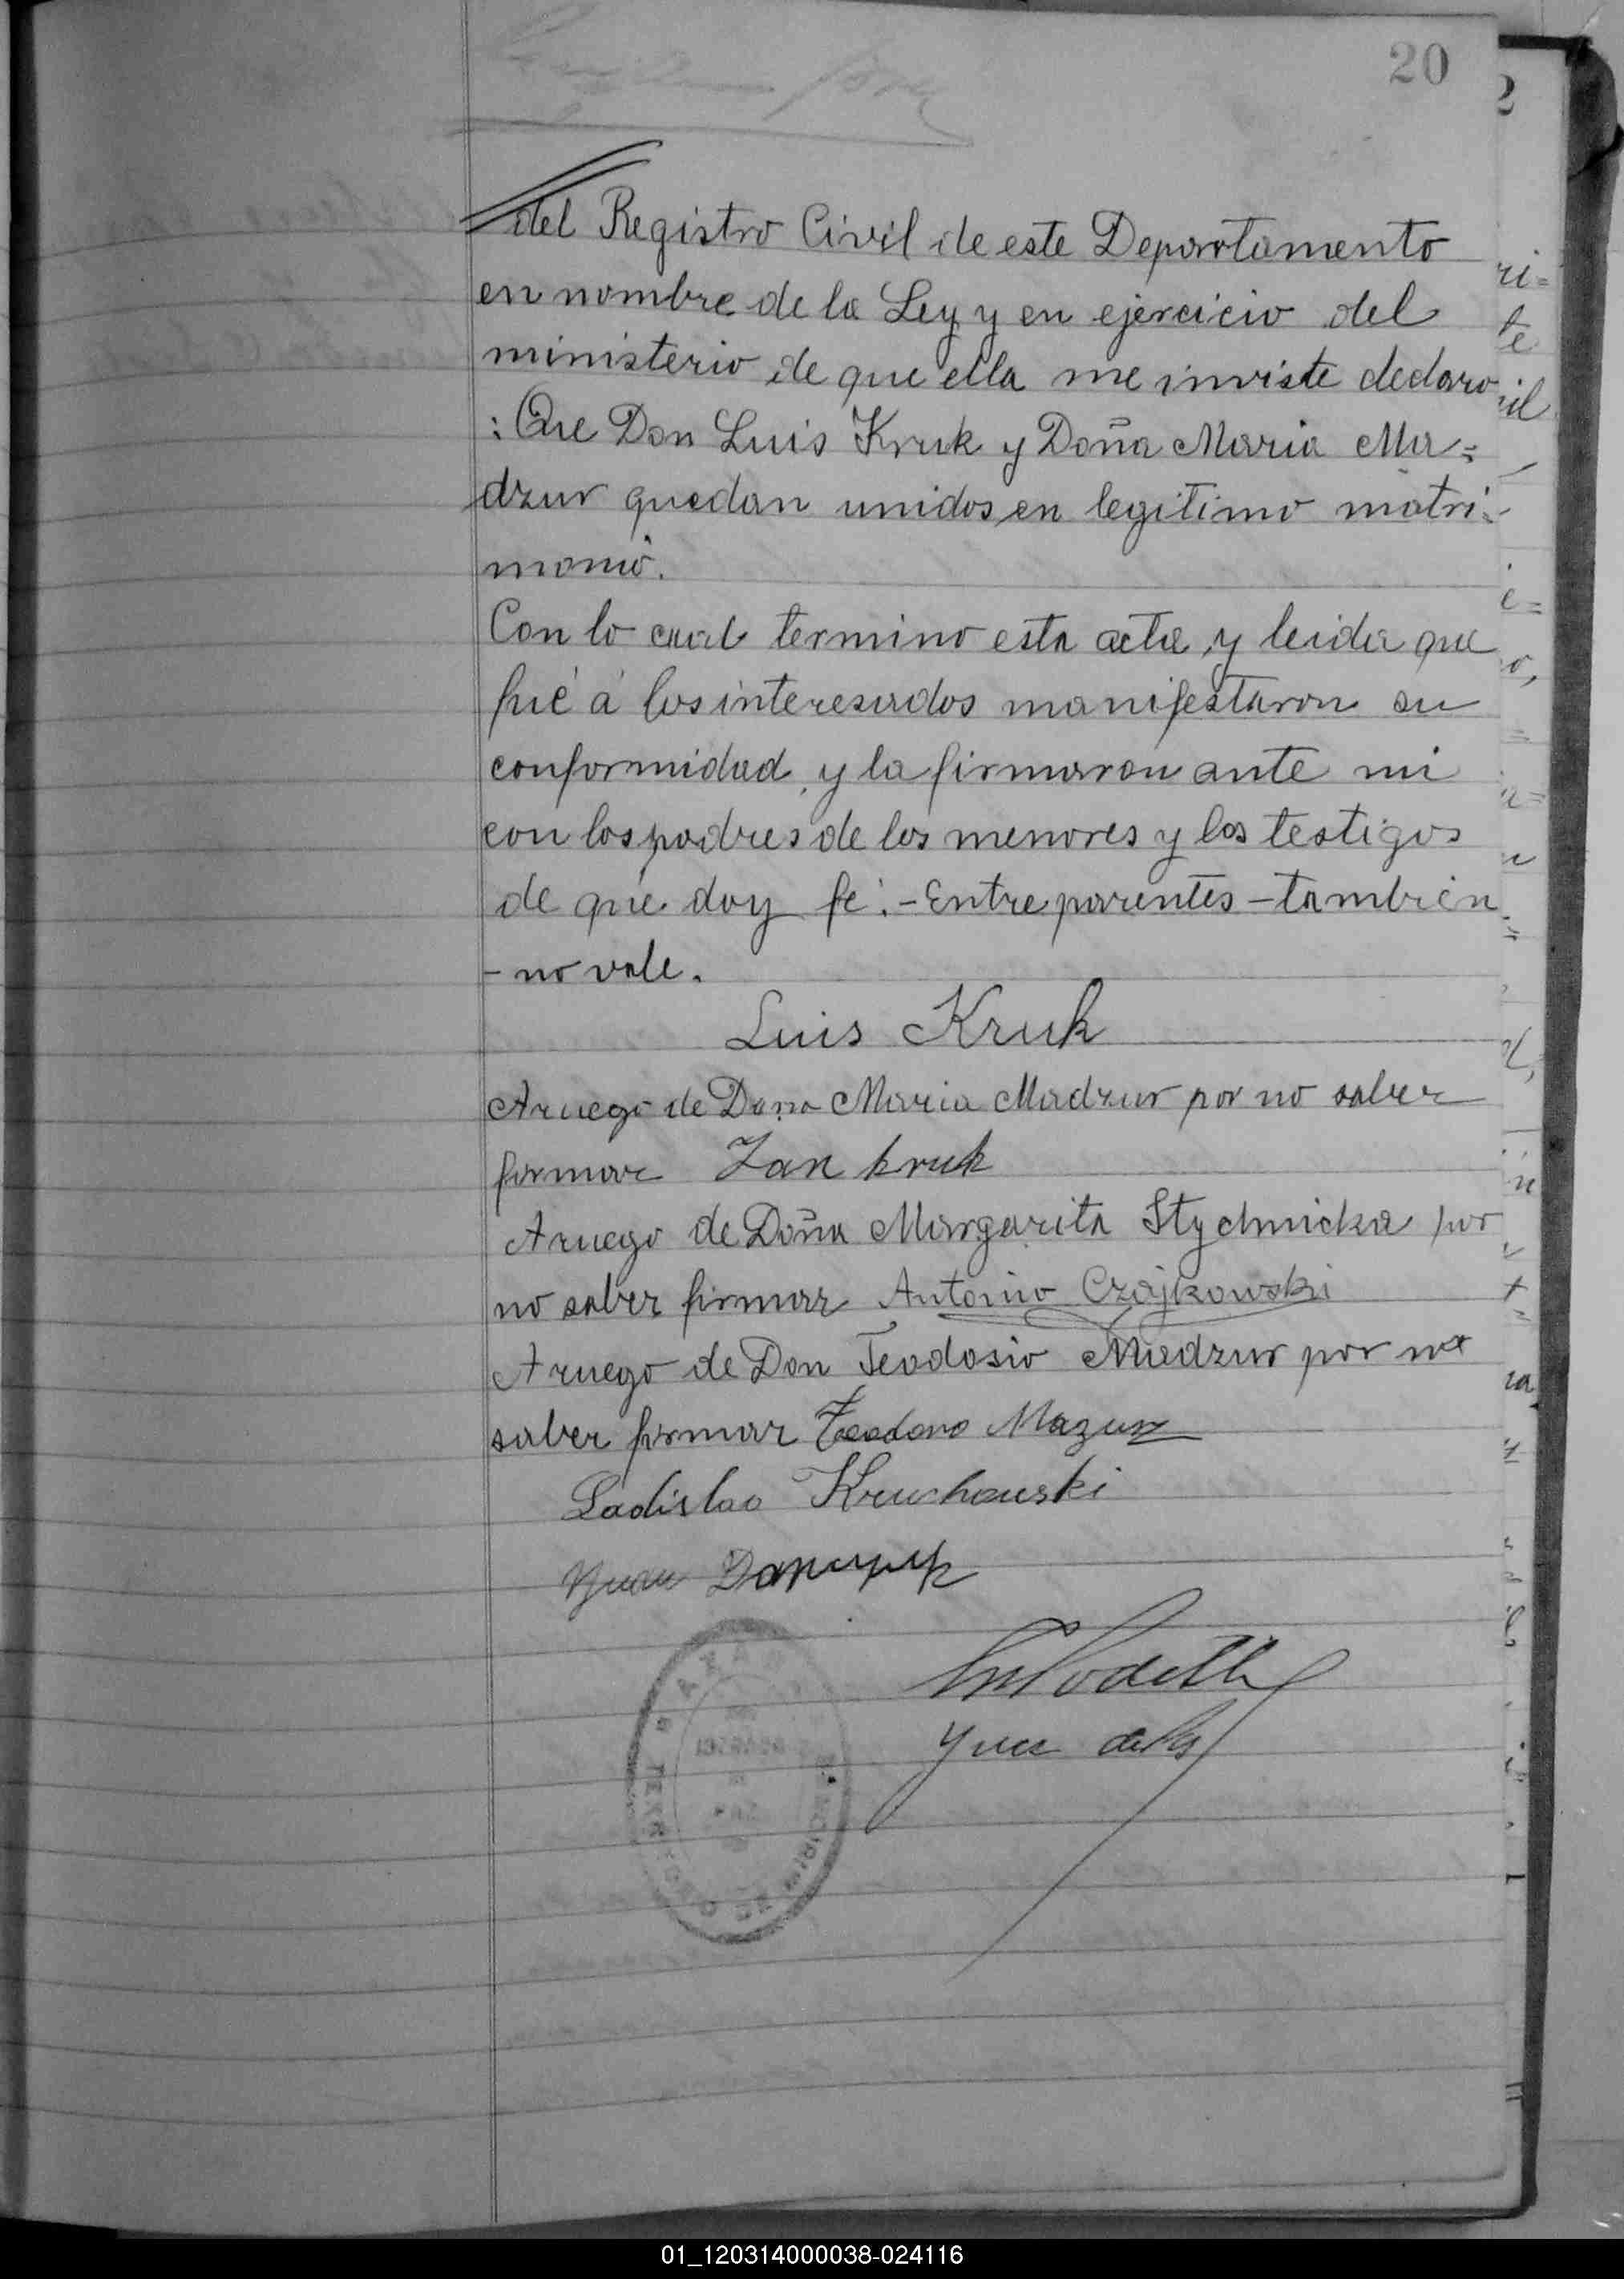 20
del Registro Civil de este Departamento
en nombre de la Ley y en ejercicio del
ministerio de que ella me inviste declaro
: Que Don Luis Kruk y Doña Maria Ma=
dzur quedan unidos en legitimo matri=
monio.
Con lo cual termino esta acta, y leida que
fué á los interesados manifestaron su
conformidad, y la firmaron ante mi
con los padres de los menores y los testigos
de que doy fé.-Entre parentes-tambien
-no vale.
Luis Kruk
Aruego de Doña Maria Madzur por no saber
firmar Jan kruk
Aruego de Doña Margarita Stychnicka por
no saber firmar Antonio Czajkowski
Aruego de Don Teodosio Madzur por no
saber firmar Teodoro Mazur
Ladislao Kruchowski
Juez de Paz
01_120314000038-024116